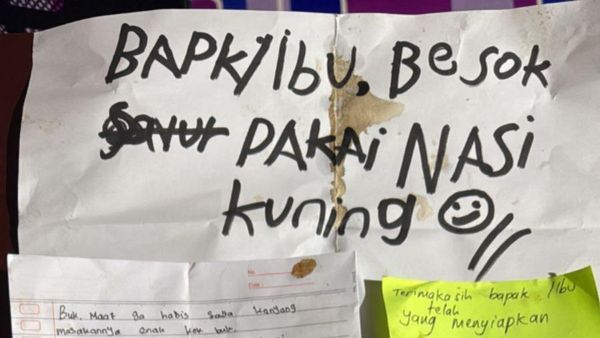 BAPK/iBU, BESOK
sayur PAKAi NASi
kuning
No.
Date
Buk. Maaf ga habis saya kentang
masakannya enak kok buk.
Terimakasih bapak /ibu
telah
yang menyiapkan